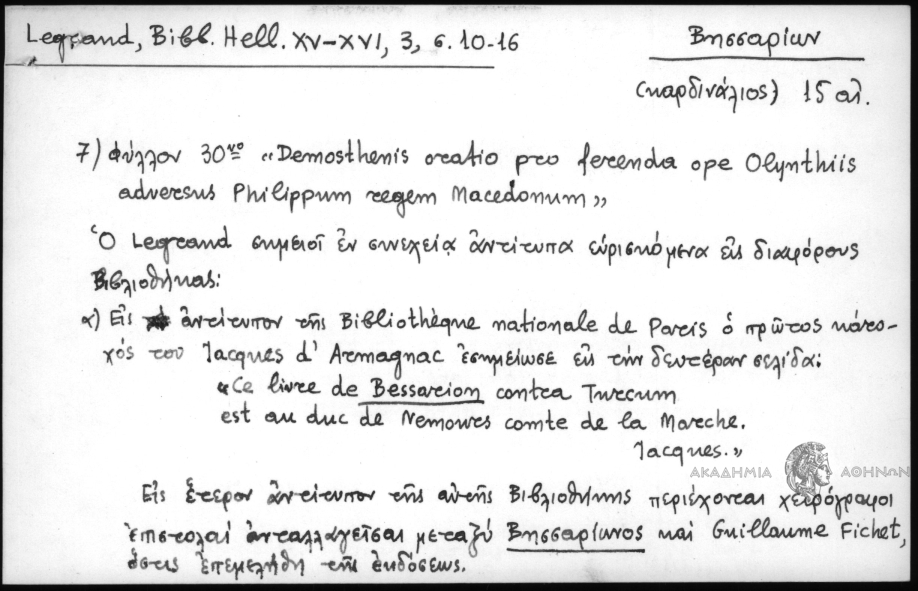 Legrand, Βιβλ. Hell. XV-XVI, 3, σ. 10-16
Βησσαρίων
(καρδινάλιος) 15 αἰ.
7) Φύλλον 30νο «Demosthenis oratio pro ferenda ope Olynthiis
adversus Philippum regem Macedonum»
Ὁ Legrand σημειοῖ ἐν συνεχείᾳ ἀντίτυπα εὑρισκόμενα εἰς διαφόρους
Βιβλιοθήκας:
α) Εἰς ἀντίτυπον τῆς Bibliothèque nationale de Paris ὁ πρῶτος κάτο-
χός του Jacques d' Armagnac ἐσημείωσε εἰς τὴν δευτέραν σελίδα:
«Ce livre de Bessarion contra Turcum
est au duc de Nemours comte de la Marche.
Jacques.»
ΑΚΑΔΗΜΙΑ ΑΘΗΝΩΝ
Εἰς ἕτερον ἀντίτυπον τῆς αὐτῆς Βιβλιοθήκης περιέχονται χειρόγραφοι
ἐπιστολαί ἀνταλλαγεῖσαι μεταξύ Βησσαρίωνος καί Guillaume Fichet,
ὅστις ἐπεμελήθη τῆς ἐκδόσεως.